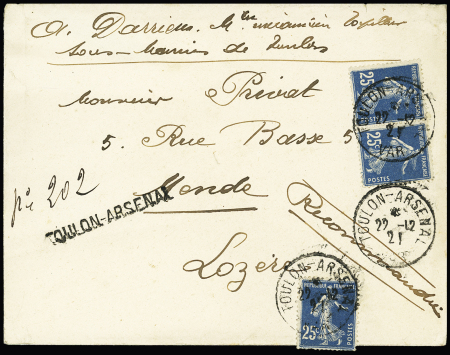 A. Darrieus. Mtre mécanicien torpilleur
Sous-Marins de Toulon
Monsieur Privat
5. Rue Basse 5
Mende
Lozère
n° 202
TOULON-ARSENAL
Recommandée
25c
POSTES
25c
POSTES
TOULON-ARSENAL
22 -12
21
VAR
TOULON-ARSENAL
*
22 -12
21
TOULON-ARSENAL
22 -12
REPUBLIQUE FRANÇAISE
25c
POSTES